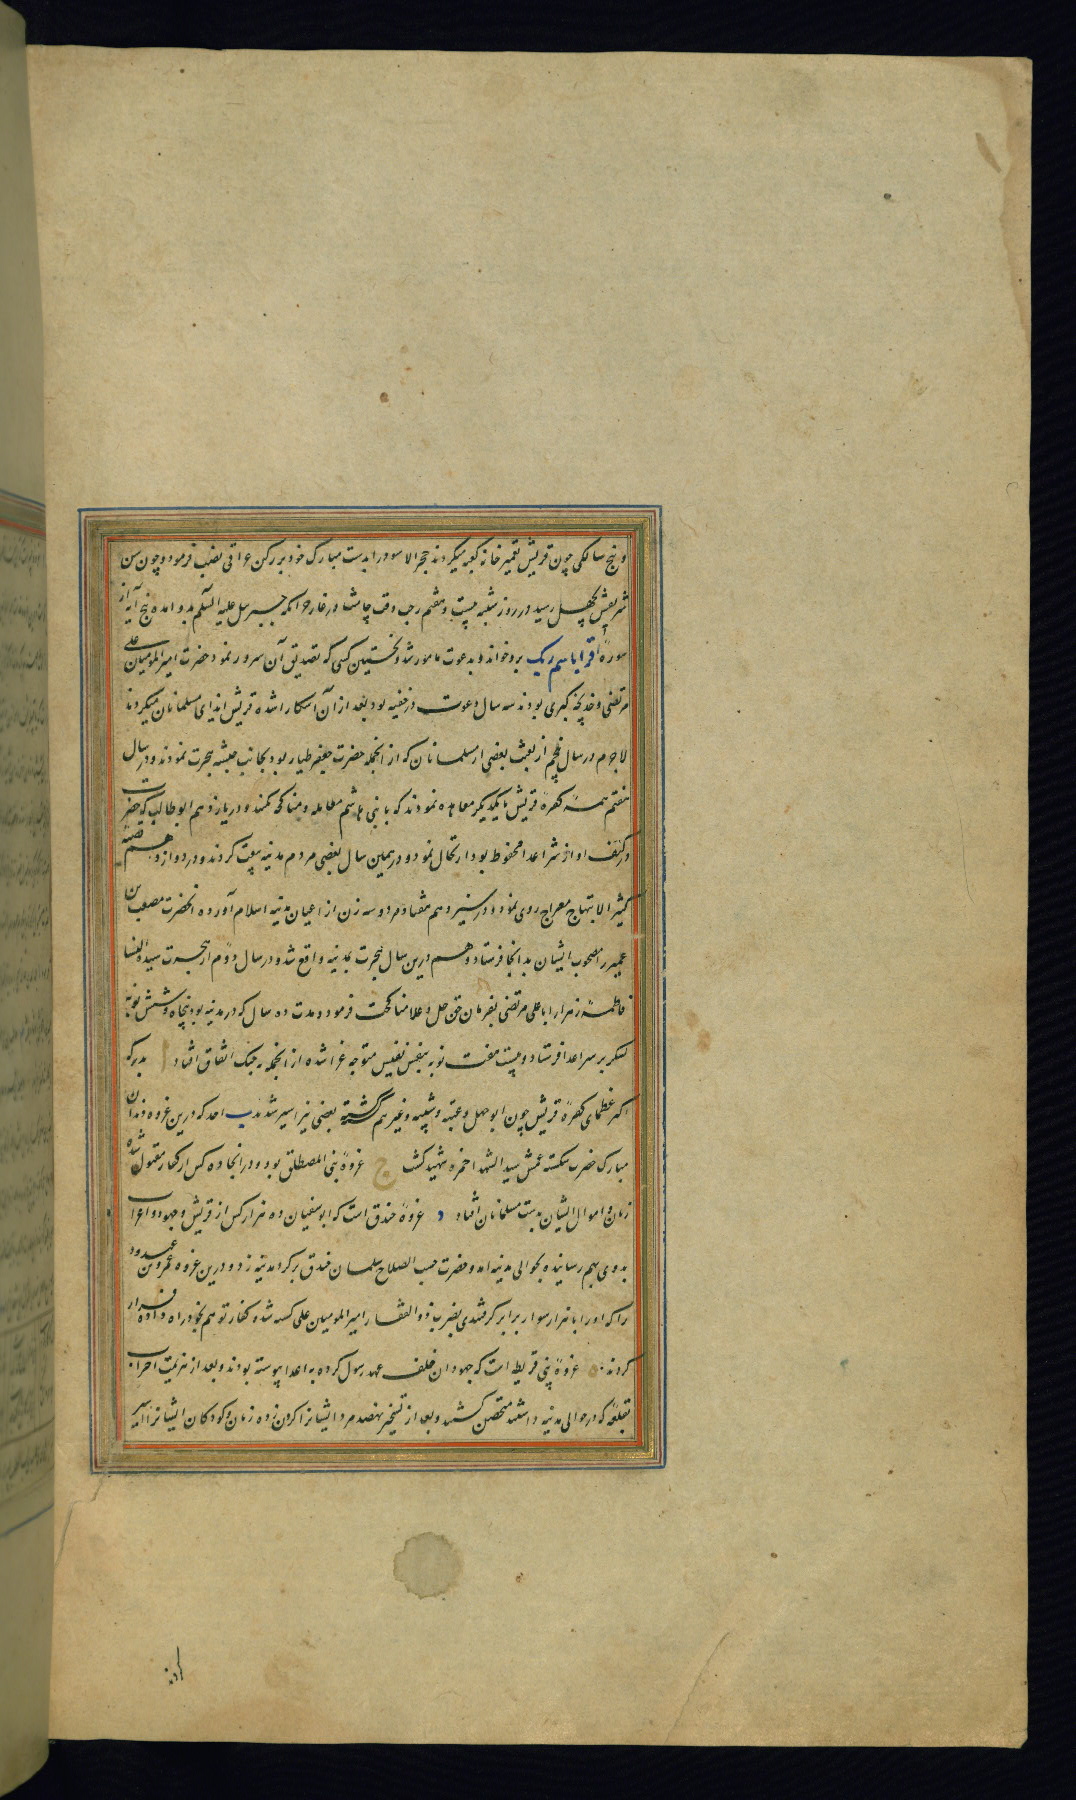 و پنج سالگی چون قریش تعمیر خانه کعبه میکردند حجر الاسود را بدست مبارک خود بر رکن عراقی نصب فرمود و چون سن
شریفش بچهل رسید در روز شنبه بیست و هفتم رجب وقت چاشت در غار حرا ملک جبرییل علیه السلم بدو امده پنج آیه از
سورهٔ اقرا باسم ربک برو خواند و بدعوت مامور شد و نخستین کسی که تصدیق آن سرور نمود حضرت امیر المومنین علی
مرتضی و خدیجه کبری بودند سه سال دعوت در خفیه بود بعد از ان آشکارا شده قریش ایذای مسلمانان میکردند
لاجرم در سال پنجم از بعثت بعضی از مسلمانان که از انجمله حضرت جعفر طیار بود بجانب حبشه هجرت نمودند و در سال
هفتم همه کفرهٔ قریش با یکدیگر معاهده نمودند که با بنی هاشم معامله و مناکحه نکنند و در یازدهم ابو طالب که حضرت
در کنف او از شر اعدا محفوظ بود ارتحال نمود و در همین سال بعضی مردم مدینه بیعت کردند و در دوازدهم قضیه
کثیر الابتهاج معراج روی نمود و در سیزدهم هفتاد مرد و سه زن از اعیان مدینه اسلام آورده انحضرت مصعب بن
عمیر را مصحوب ایشان بدانجا فرستاد و هم درین سال هجرت بمدینه واقع شد و در سال دوم از هجرت سیدة النسا
فاطمهٔ زهرا را با علی مرتضی بفرمان حق جل و علا مناکحت فرمود و مدت ده سال که در مدینه بود پنجاه و شش نوبه
لشکر بر سر اعدا فرستاد و بیست هفت نوبه بنفس نفیس متوجه غزا شده از انجمله نه جنک اتفاق افتاد ا بدر که
اکثر عظمای کفرهٔ قریش چون ابو جهل و عتبه و شیبه و غیرهم کشته بعضی نیز اسیر شدند ب احد که درین غزوه دندان
مبارک حضرت شکسته عمش سید الشهدا حمزه شهید کشت ج غزوهٔ بنی المصطلق بود و در انجا ده کس از کفار مقتول شده
زنان و اموال ایشان بدست مسلمانان افتاد د غزوهٔ خندق است که ابو سفیان ده هزار کس از قریش و جهود و اعراب
بدوی بهم رسانیده بحوالی مدینه امد و حضرت حسب الصلاح سلمان خندق بر کرد مدینه زد و درین غزوه عمرو بن عبدود
را که او را با هزار سوار برابر کرفتندی بضرب ذو الفقار امیر المومنین علی کشته شد و کفار توهم بخود راه داده فرار
کردند ه غزوهٔ بنی قریظه است که جهودان خلف عهد رسول کرده به اعدا پیوسته بودند و بعد از هزیمت احزاب
بقلعهٔ که در حوالی مدینه داشتند متحصن کشتند و بعد از تسخیر نهصد مرد ایشانرا کردن زده زنان و کودکان ایشانرا اسیر